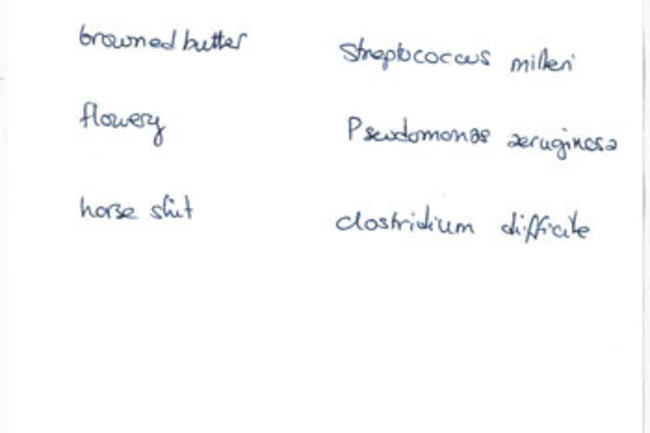 browned butter Streptococcus milleri
flowery Pseudomonas aeruginosa
horse shit Clostridium difficile